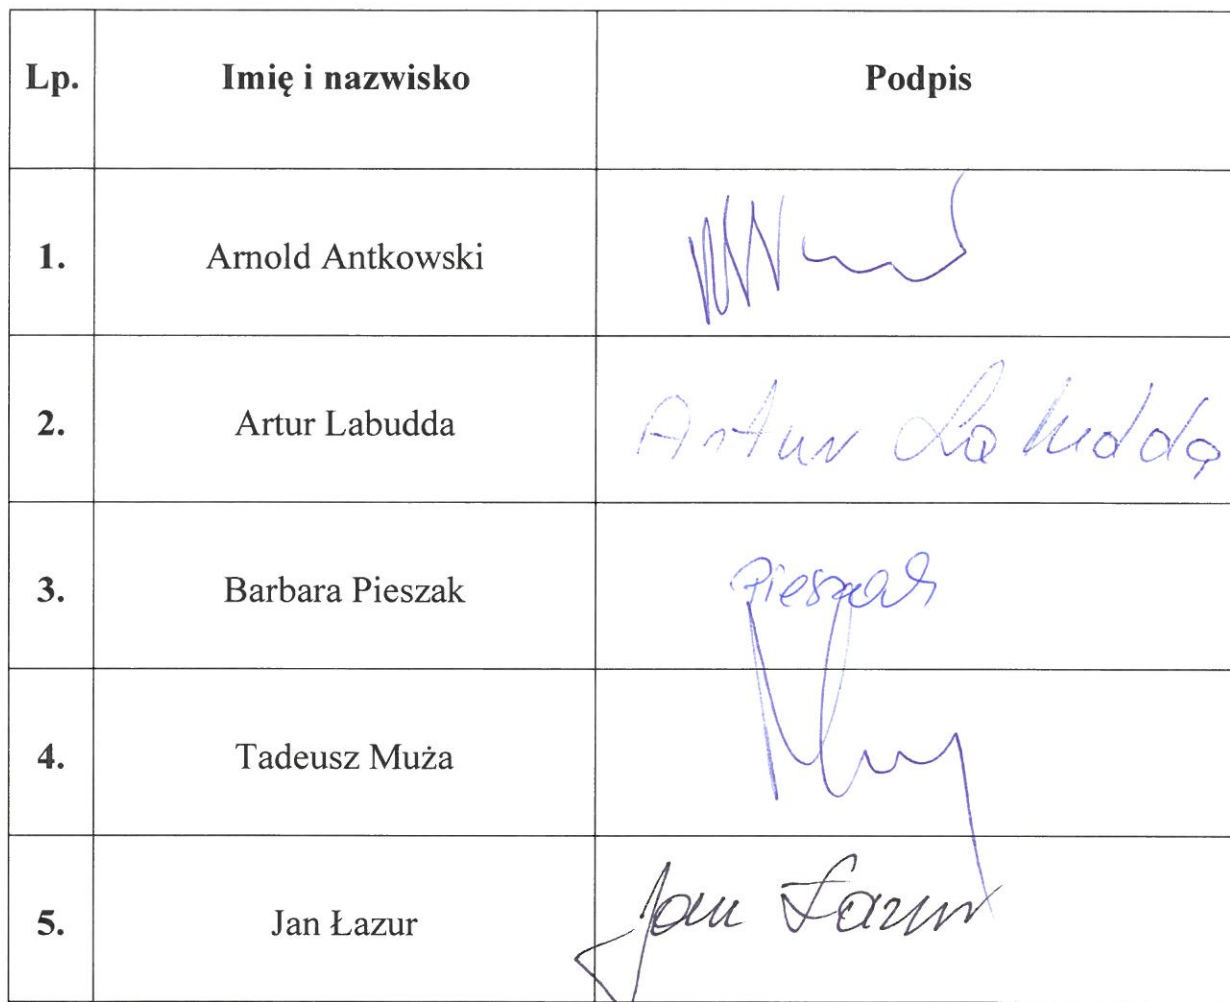 Lp. Imię i nazwisko Podpis
1. Arnold Antkowski
2. Artur Labudda Artur Labudda
3. Barbara Pieszak Pieszak
4. Tadeusz Muża
5. Jan Łazur Jan Łazur